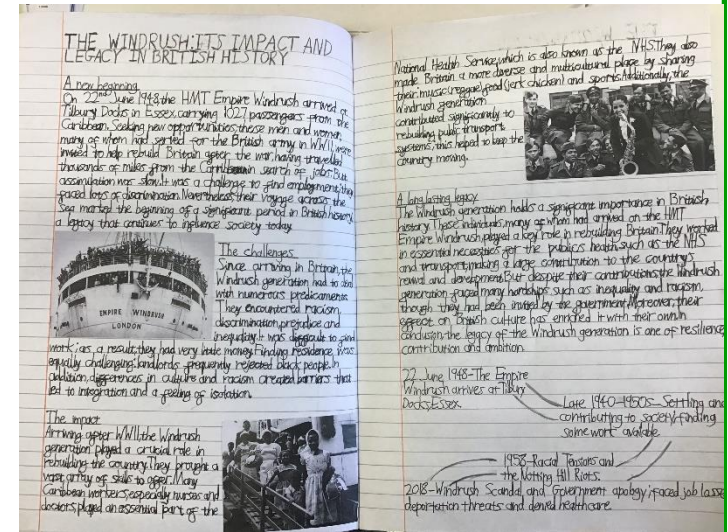 THE WINDRUSH:ITS IMPACT AND
LEGACY IN BRITISH HISTORY
A new beginning
On 22nd June 1948,the HMT Empire Windrush arrived at
Tilbury Docks in Essex,carrying 1027 passengers from the
Caribbean. Seeking new opportunities,these men and women,
many of whom had served for the British army in WWII, were
invited to help rebuild Britain after the war, having travelled
thousands of miles from the Caribbean in search of jobs. But
assimilation was slow.It was a challenge to find employment,they
faced lots of discrimination.Nevertheless,their voyage across the
Sea marked the beginning of a significant period in British history,
a legacy that continues to influence society today.
EMPIRE WINDRUSH
LONDON
The challenges
Since arriving in Britain,the
Windrush generation had to deal
with numerous predicaments.
They encountered racism,
discrimination,prejudice and
inequality.It was difficult to find
work; as a result,they had very little money.Finding residence was
equally challenging:landlords frequently rejected black people.In
addition,differences in culture and racism created barriers that
led to integration and a feeling of isolation.
The impact
Arriving after WWII,the Windrush
generation played a crucial role in
rebuilding the country.They brought a
vast array of skills to offer.Many
Caribbean workers,especially nurses and
doctors,played an essential part of the
National Health Service,which is also known as the NHS.They also
made Britain a more diverse and multicultural place by sharing
their music(reggae),food(jerk chicken) and sports.Additionally,the
Windrush generation
contributed significantly to
rebuilding public transport
systems,this helped to keep the
country moving.
A long lasting legacy
The Windrush generation holds a significant importance in British
history.These individuals,many of whom had arrived on the HMT
Empire Windrush,played a key role in rebuilding Britain.They worked
in essential necessities for the public's health,such as the NHS
and transport,making a large contribution to the country's
revival and development.But despite their contributions,the Windrush
generation faced many hardships,such as inequality and racism,
though they had been invited by the government.Moreover,their
effect on British culture has enriched it with their own.In
conclusion,the legacy of the Windrush generation is one of resilience,
contribution and ambition.
22 June 1948-The Empire
Windrush arrives at Tilbury
Docks,Essex
Late 1940-1950s- Settling and
contributing to society,finding
some work available
1958-Racial Tensions and
the Notting Hill Riots.
2018-Windrush Scandal and Government apology:faced job losses
deportation threats and denied healthcare.